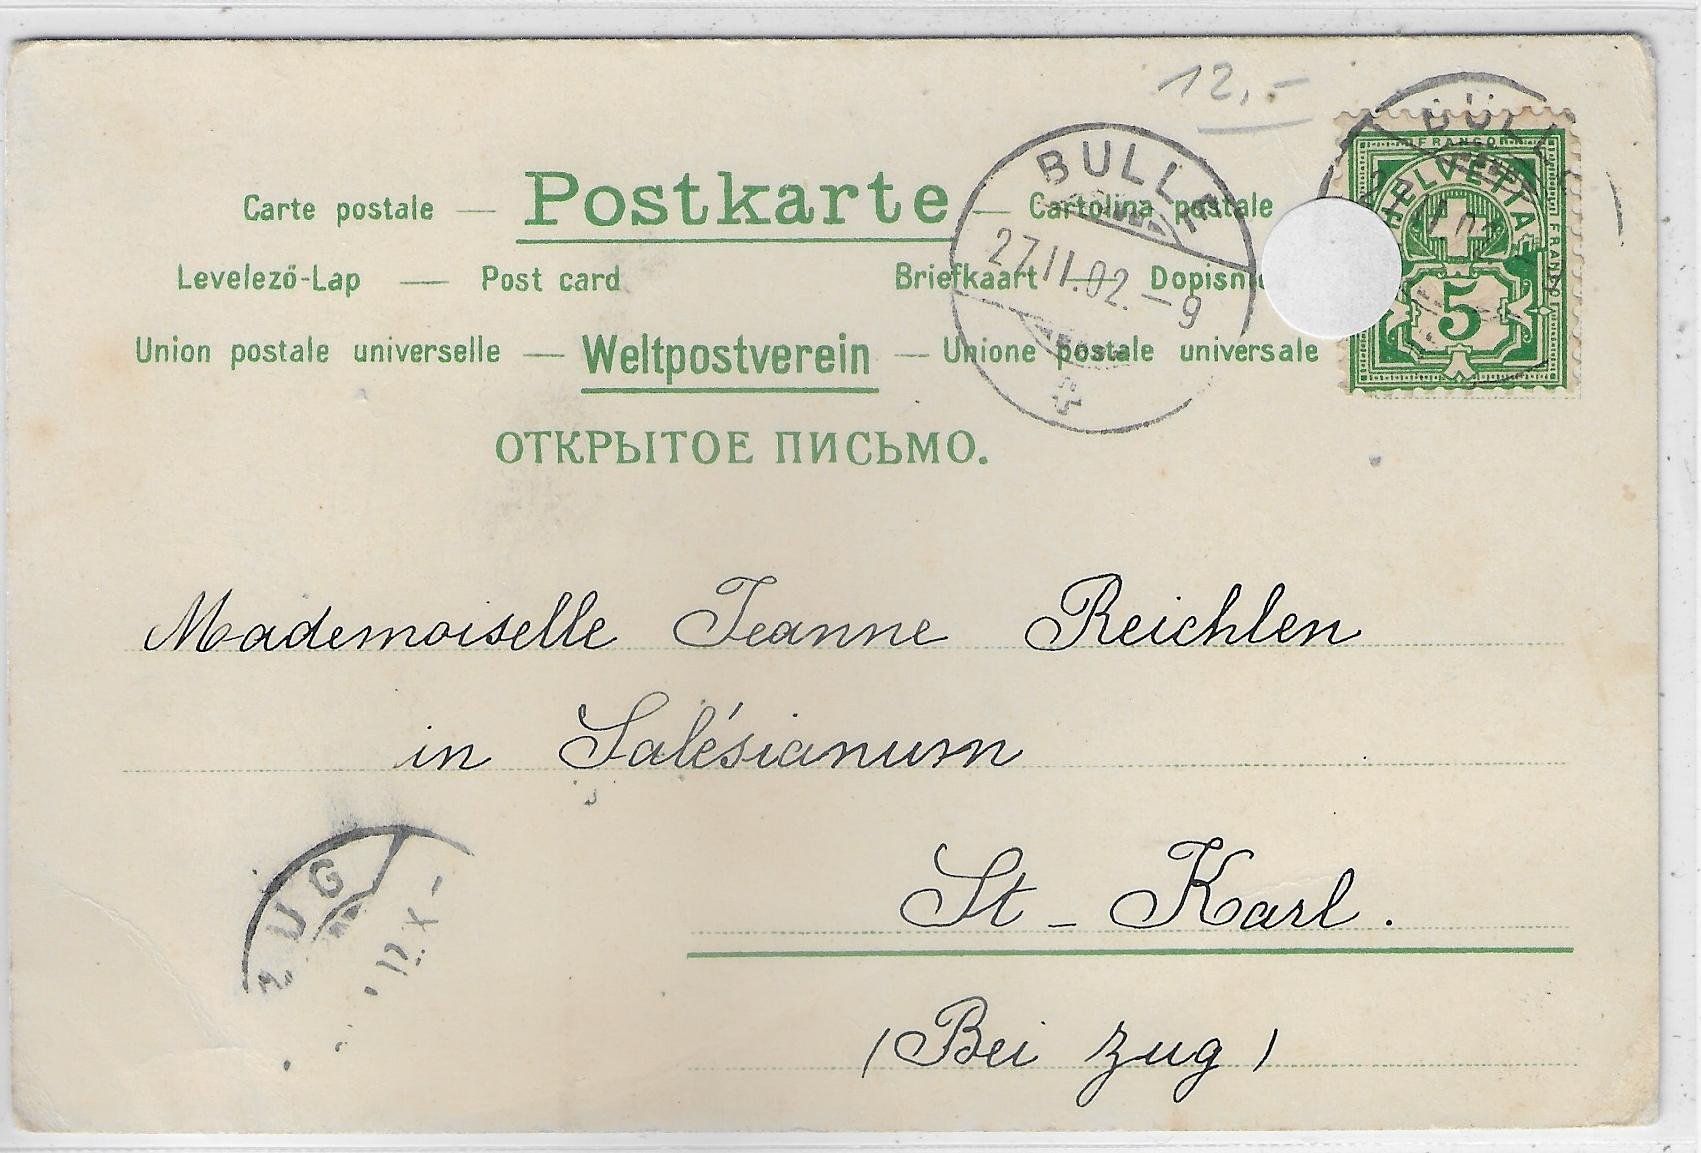 12,-
Carte postale — Postkarte — Cartolina postale
Levelező-Lap — Post card Briefkaart — Dopisni
Union postale universelle — Weltpostverein — Unione postale universale
ОТКРЫТОЕ ПИСЬМО.
BULLE
27.II.02.-9
BULLE
FRANCO
HELVETIA
FRANCO
5
Mademoiselle Jeanne Reichlen
in Salésianum
St - Karl.
(Bei Zug)
ZUG